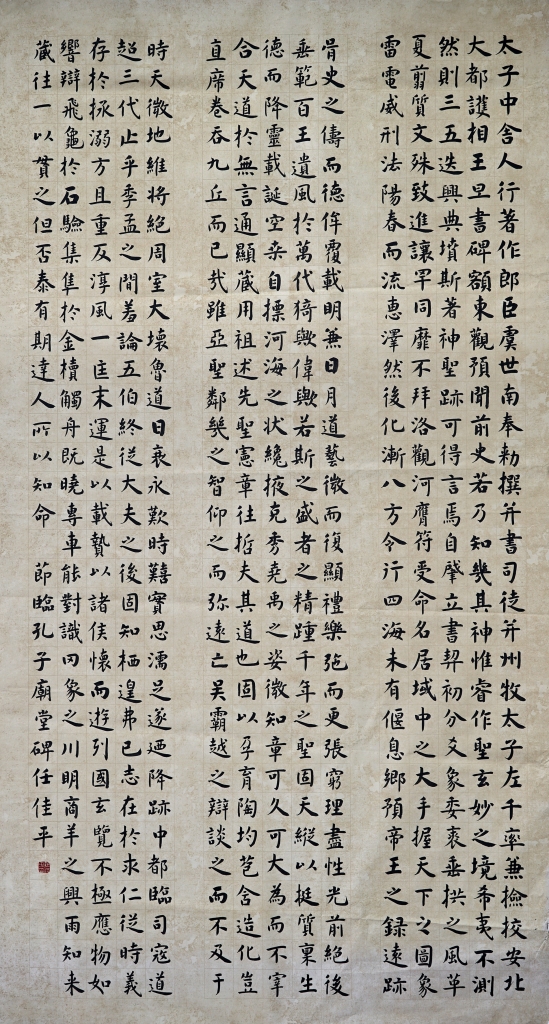 太子中舍人行著作郎臣虞世南奉勑撰并書司徒并州牧太子左千率兼檢校安北
大都護相王旦書碑額東觀預聞前史若乃知幾其神惟睿作聖玄妙之境希夷不測
然則三五迭興典墳斯著神聖跡可得言焉自肇立書契初分爻象委裘垂拱之風革
夏翦質文殊致進讓罕同靡不拜洛觀河膺符受命名居域中之大手握天下之圖象
雷電威刑法陽春而流惠澤然後化漸八方令行四海未有偃息鄉預帝王之録遠跡
胥史之儔而德侔覆載明兼日月道藝微而復顯禮樂弛而更張窮理盡性光前絕後
垂範百王遺風於萬代猗歟偉歟若斯之盛者之精踵千年之聖固天縱以挺質稟生
德而降靈載誕空桑自摽河海之状纔掖克秀堯禹之姿微知章可久可大為而不宰
合天道於無言通顯藏用祖述先聖憲章往哲夫其道也固以孕育陶均苞含造化豈
直席卷吞九丘而已哉雖亞聖鄰幾之智仰之而弥遠亡吴霸越之辯談之而不及于
時天微地維將絕周室大壞魯道日衰永歎時艱實思濡足遂迺降跡中都臨司寇道
超三代止乎季孟之間羞論五伯終從大夫之後固知栖遑弗已志在於求仁從時義
存於拯溺方且重反淳風一匡末運是以載贄以諸侯懷而遊列國玄覽不極應物如
響辯飛龜於石驗集隼於金櫝觸舟既曉專車能對識罔象之川明商羊之興雨知來
藏往一以貫之但否泰有期達人所以知命 節臨孔子廟堂碑任佳平